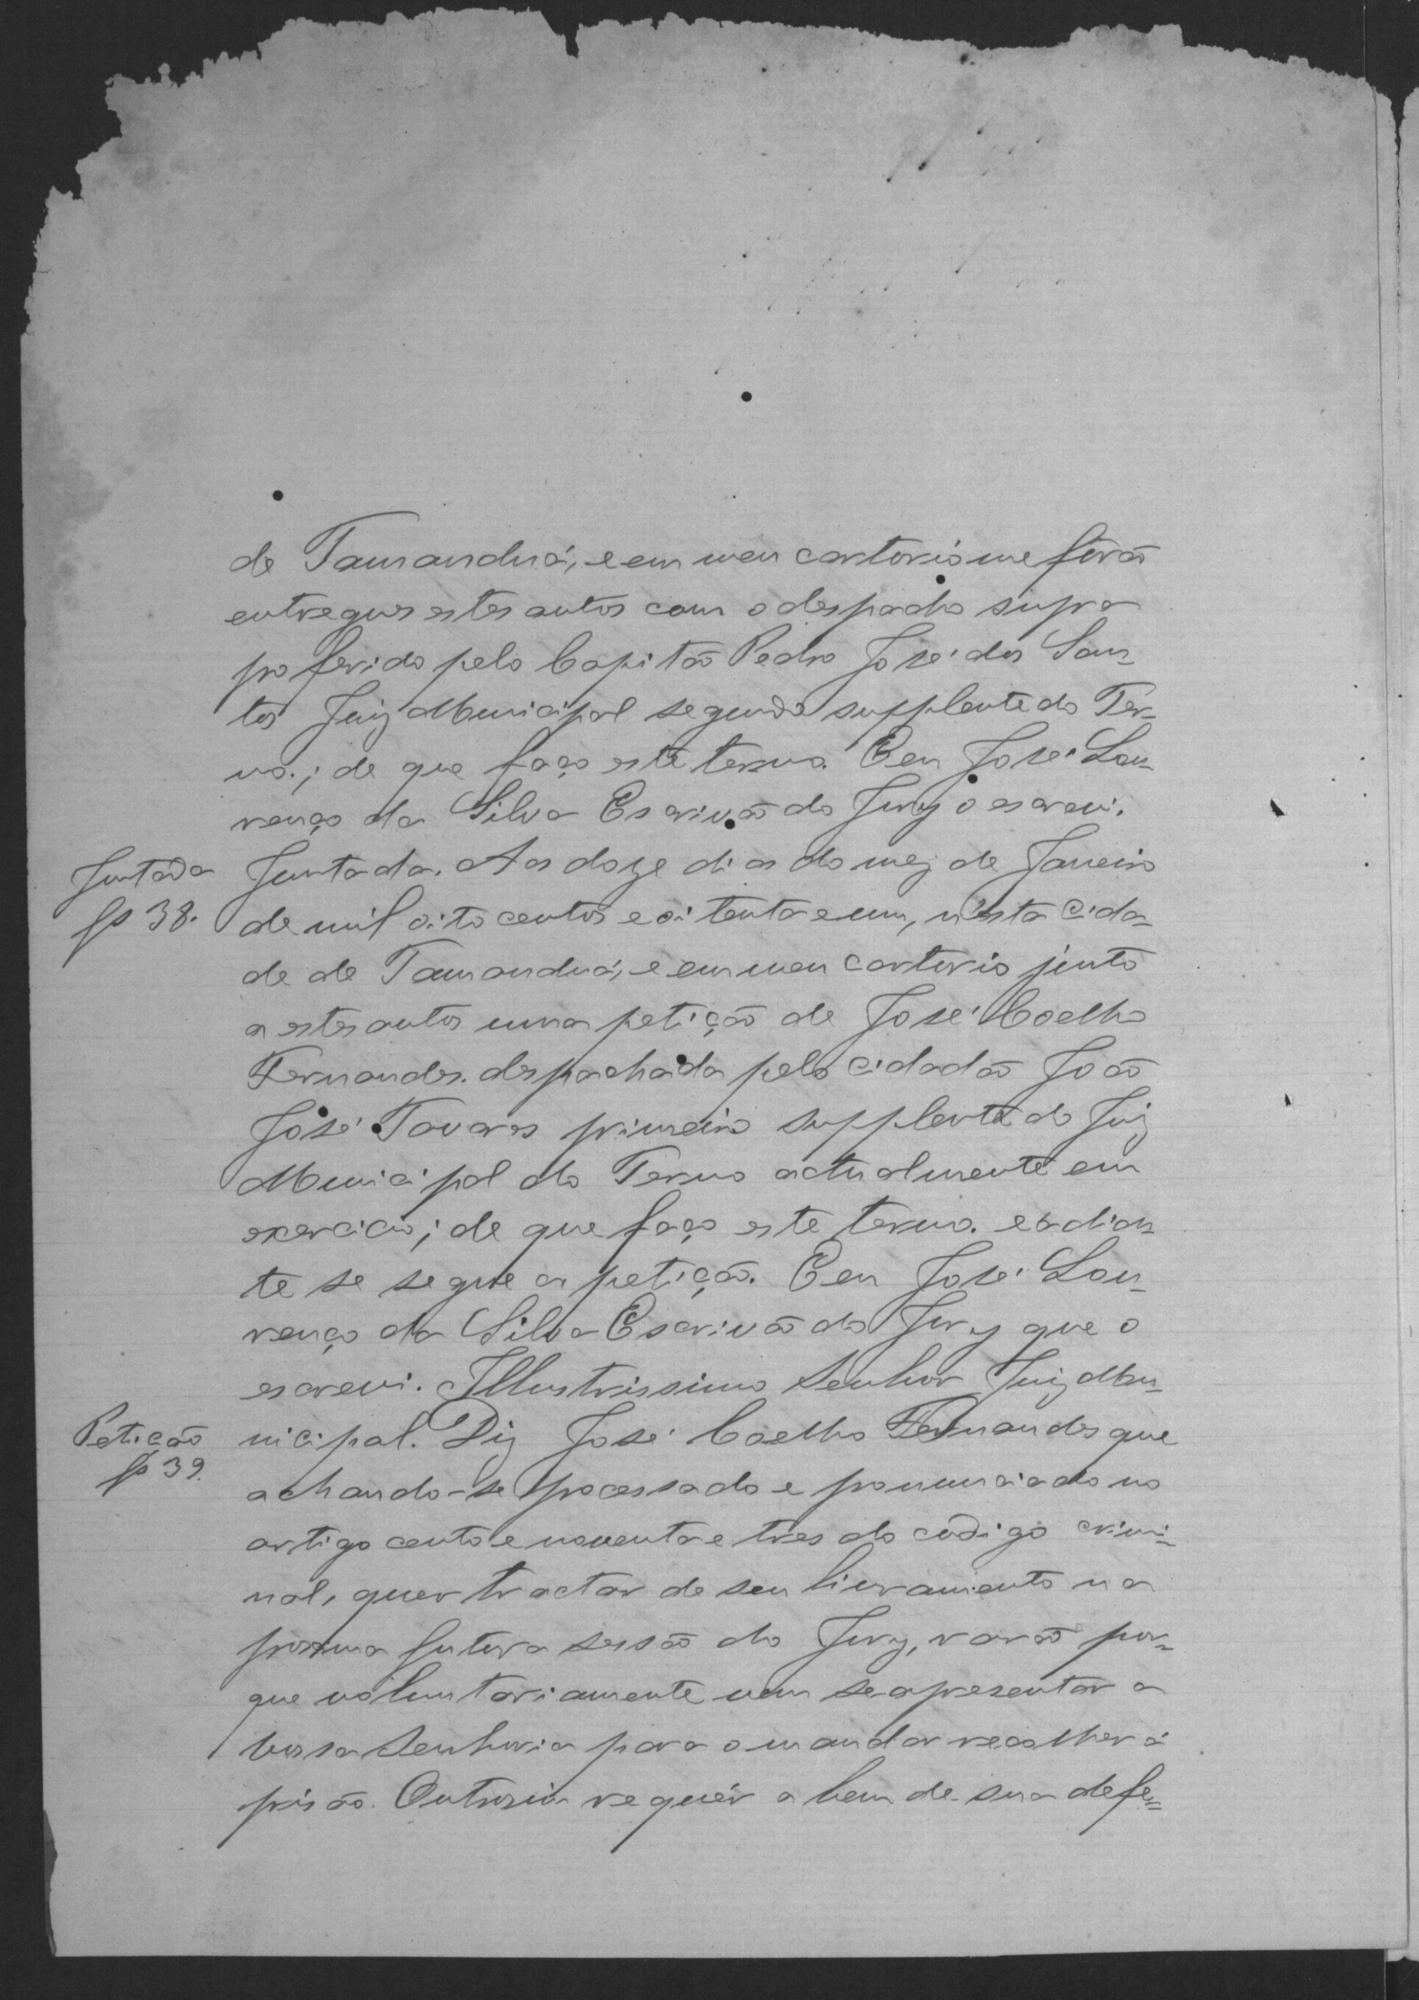 de Tamanduá, e em meu cartorio me forão
entregues estes autos com o despacho supra
proferido pelo Capitão Pedro José dos San-
tos Juiz Municipal segundo supplente do Ter-
mo; de que faço este termo. Eu José Lou-
renço da Silva Escrivão do Jury o escrevi.
Juntada Juntada. Aos doze dias do mez de Janeiro
fs 38. de mil oito centos e oitenta e um, n'esta Cida-
de de Tamanduá, e em meu cartorio junto
a estes autos uma petição de José Coelho
Fernandes. despachada pelo cidadão João
José Tavares primeiro supplente do Juiz
Municipal do Termo actualmente em
exercicio; de que faço este termo. e adian-
te se segue a petição. Eu José Lou-
renço da Silva Escrivão do Jury que o
escrevi. Illustrissimo Senhor Juiz Mu-
Petição nicipal. Diz José Coelho Fernandes que
fs 39. achando-se processado e pronunciado no
artigo cento e noventa e tres do codigo crimi-
nal, quer tractar de seu livramento na
proxima futura sessão do Jury, rasão por-
que voluntariamente vem se apresentar a
vossa Senhoria para o mandar recolher á
prisão. Outrosim requér a bem de sua defe-